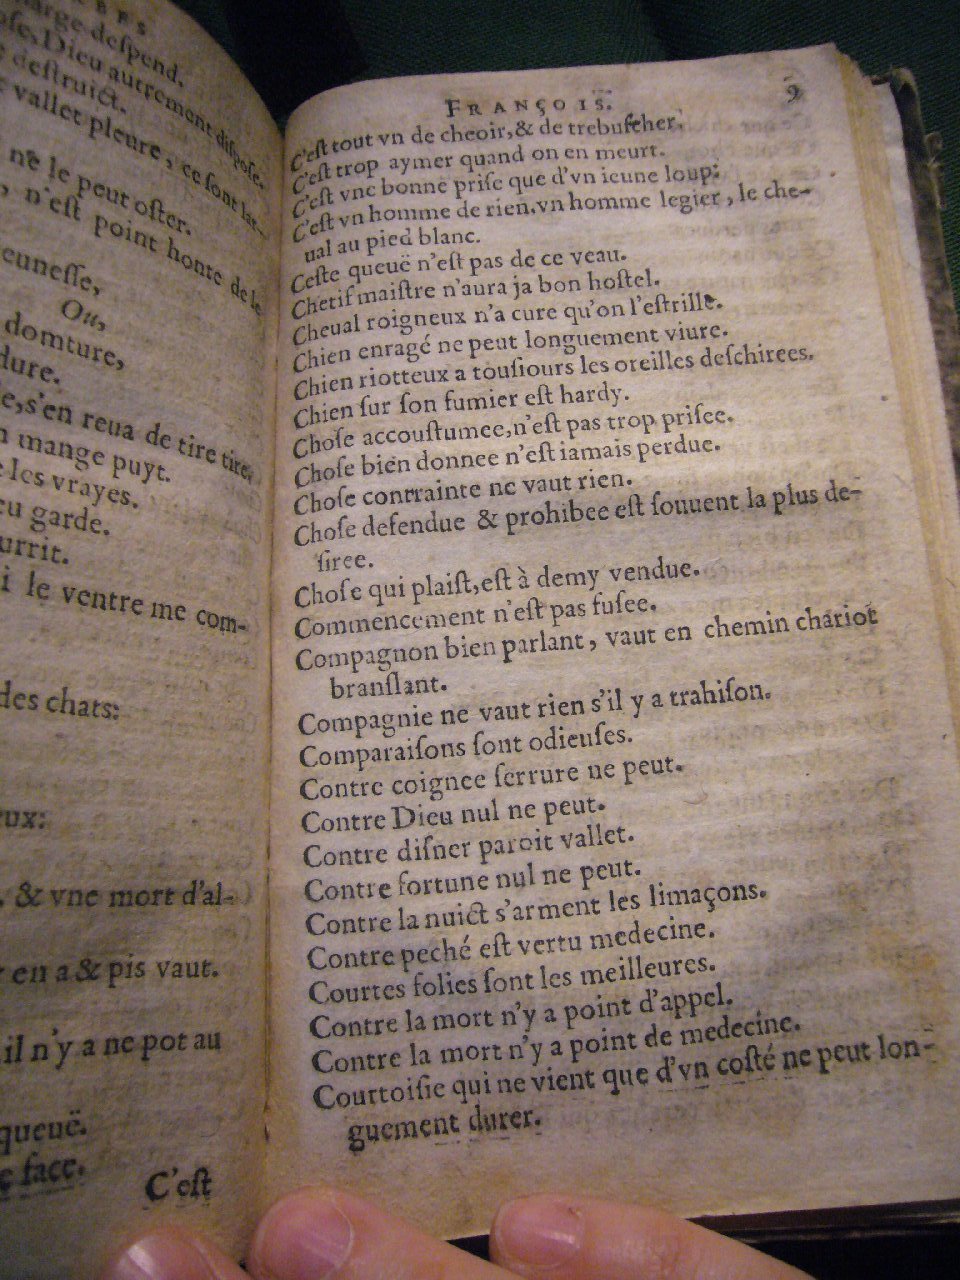 despend.
Dieu autrement dispose.
destruict.
vallet pleure, ce sont lar-
ne le peut oster.
n'est point honte de le
Ou,
domture,
dure.
s'en reua de tire tire,
mange puyt.
les vrayes.
garde.
le ventre me com-
des chats:
& vne mort d'al-
en a & pis vaut.
il n'y a ne pot au
queuë.
face.
C'eſt
FRANÇOIS. 9
C'eſt tout vn de cheoir, & de trebuſcher,
C'eſt trop aymer quand on en meurt.
C'eſt vne bonne priſe que d'vn ieune loup:
C'eſt vn homme de rien. vn homme legier, le che-
ual au pied blanc.
Ceſte queuë n'eſt pas de ce veau.
Chetif maiſtre n'aura ja bon hoſtel.
Cheual roigneux n'a cure qu'on l'eſtrille.
Chien enragé ne peut longuement viure.
Chien riotteux a touſiours les oreilles deſchirees.
Chien ſur ſon fumier eſt hardy.
Choſe accouſtumee, n'eſt pas trop priſee.
Choſe bien donnee n'eſt iamais perdue.
Choſe contrainte ne vaut rien.
Choſe defendue & prohibee eſt ſouuent la plus de-
ſiree.
Choſe qui plaiſt, eſt à demy vendue.
Commencement n'eſt pas fuſee.
Compagnon bien parlant, vaut en chemin chariot
branſlant.
Compagnie ne vaut rien s'il y a trahiſon.
Comparaiſons ſont odieuſes.
Contre coignee ſerrure ne peut.
Contre Dieu nul ne peut.
Contre diſner paroit vallet.
Contre fortune nul ne peut.
Contre la nuict s'arment les limaçons.
Contre peché eſt vertu medecine.
Courtes folies ſont les meilleures.
Contre la mort n'y a point d'appel.
Contre la mort n'y a point de medecine.
Courtoiſie qui ne vient que d'vn coſté ne peut lon-
guement durer.